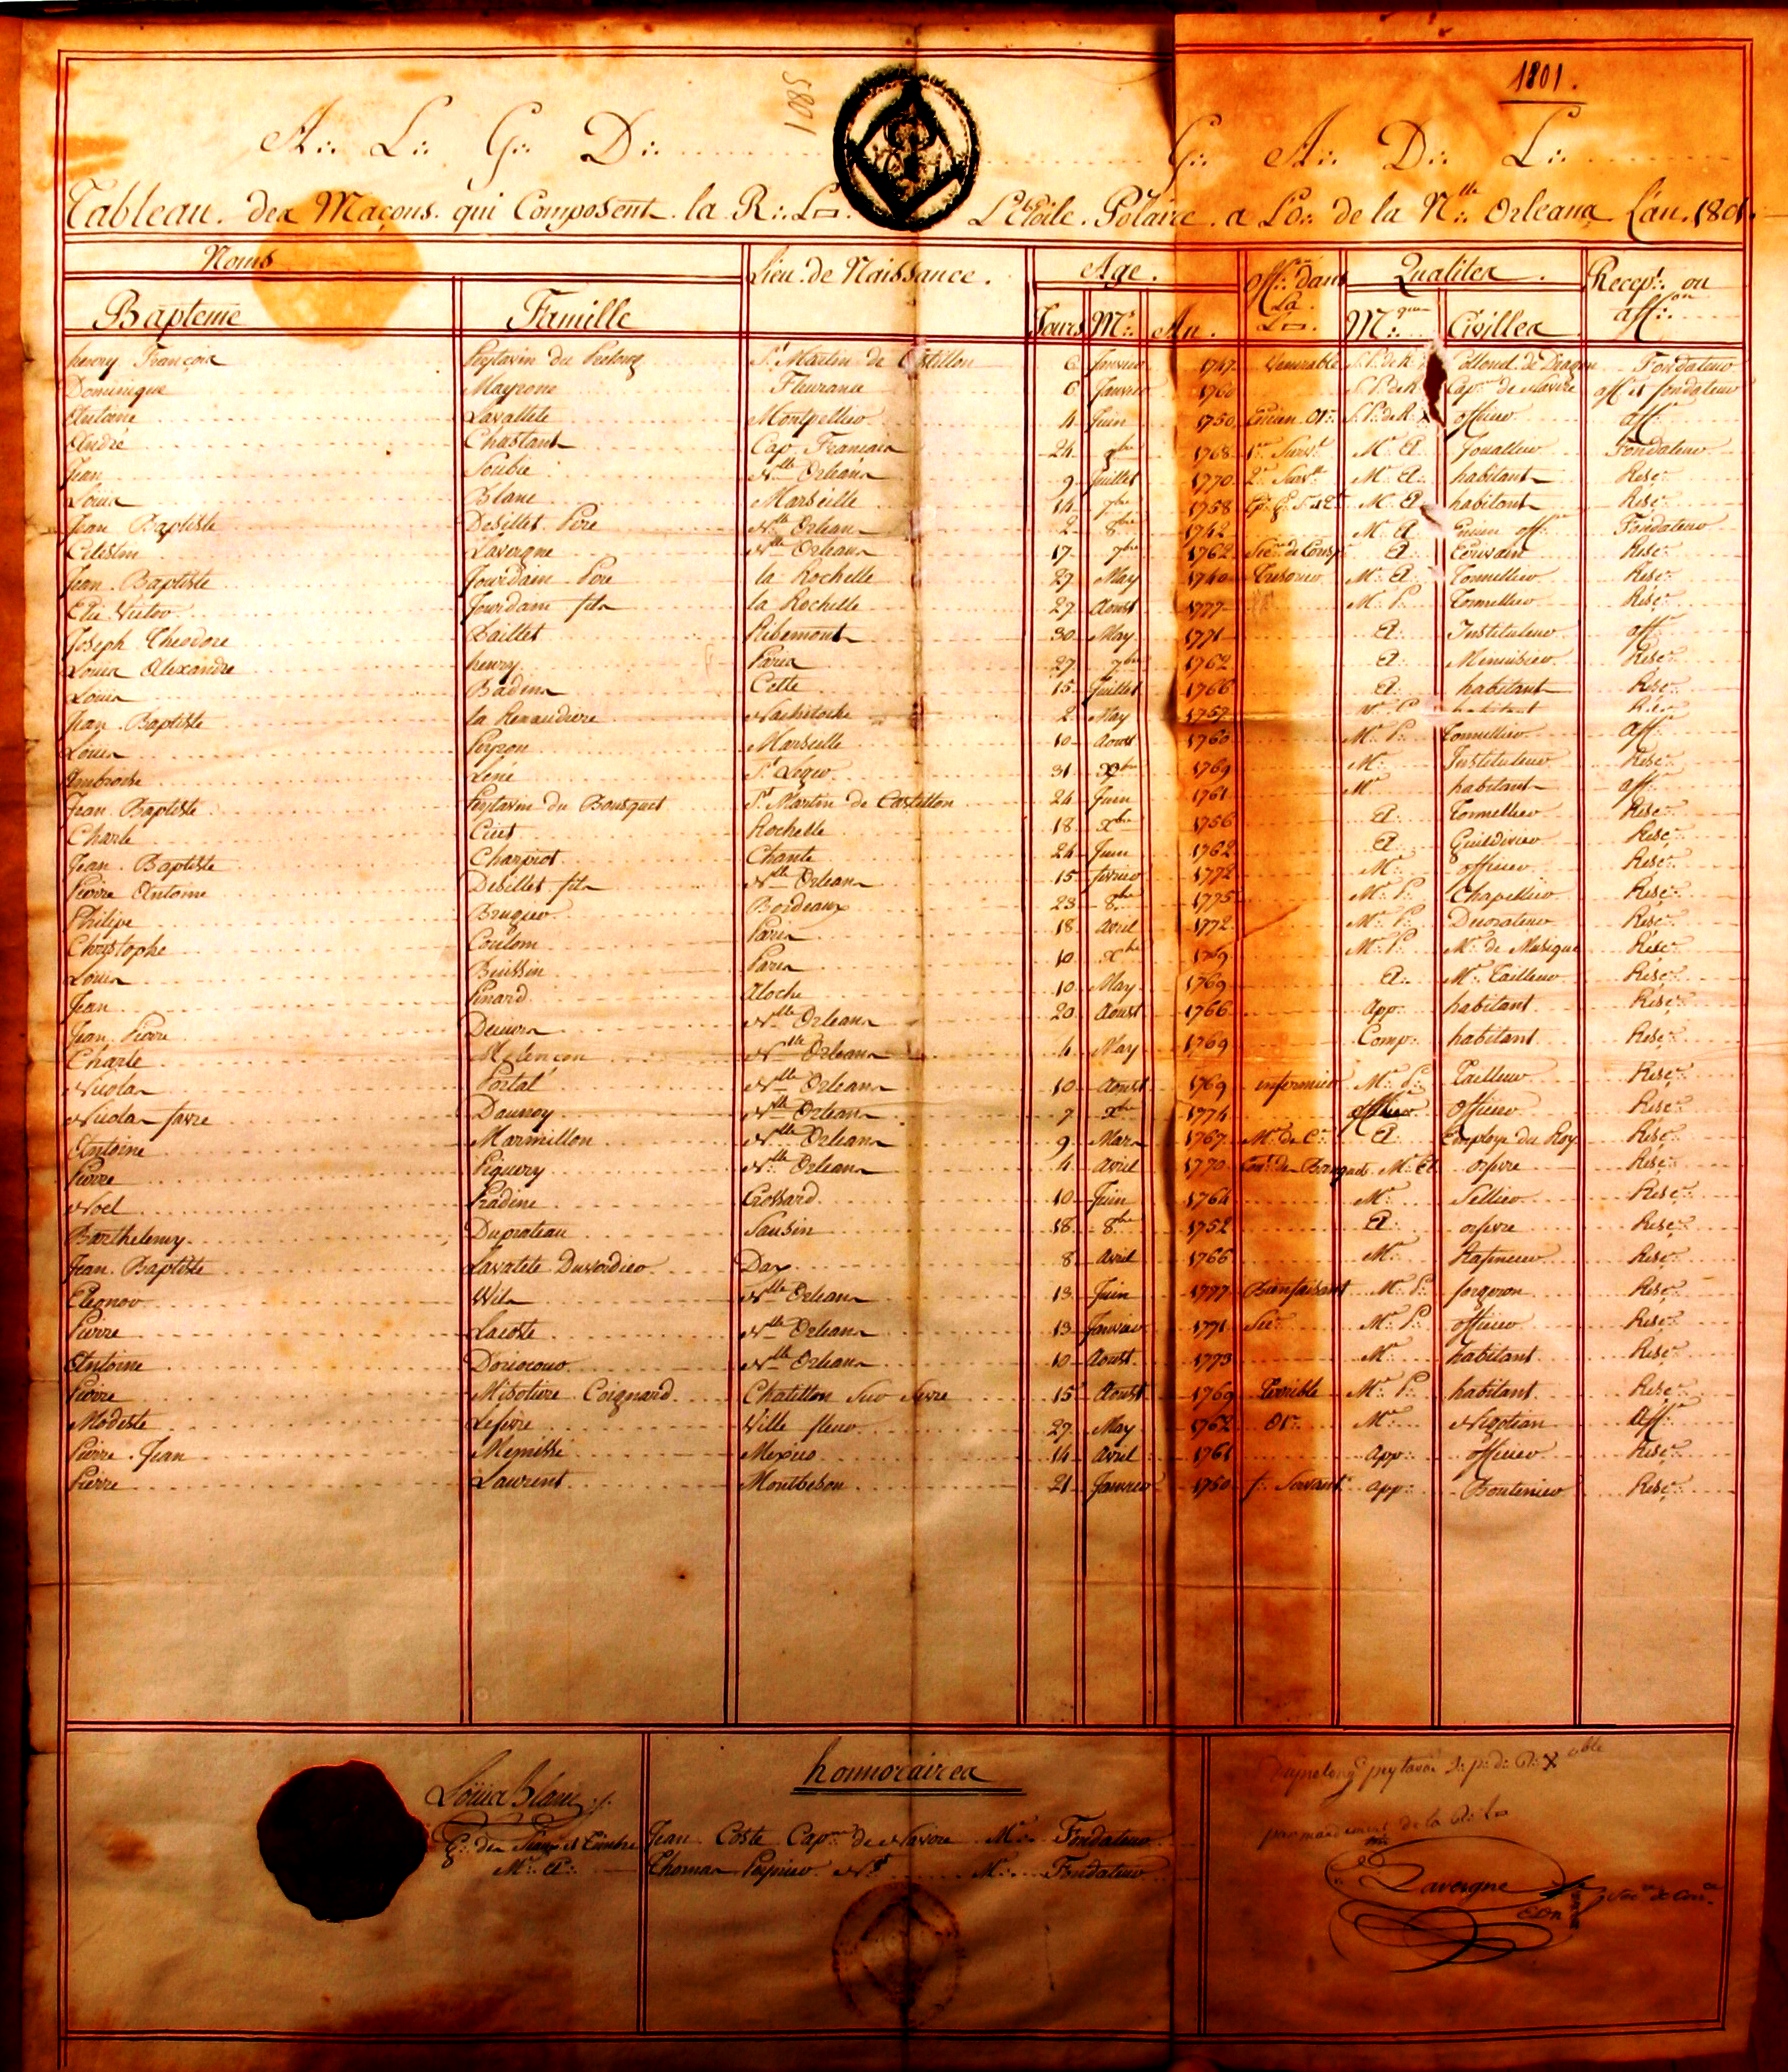 1801.
1801
A∴ L∴ G∴ D∴ G∴ A∴ D∴ L∴
Tableau des Maçons qui Composent la R∴ L▭ L'Etoile Polaire a L'O∴ de la N.lle Orleans L'an 1801.
Noms Lieu de Naissance. Age. off.∴ dans La L▭. Qualites Recep.t∴ ou aff∴on
Bapteme Famille Jours M.s An. M∴ Civilles
henry François Peytavin du St Martin de Castillon 6 Janvier 1747 Venerable S.P.deR Collonel de Dragon Fondateur
Dominique Mayrone Fleurance 6 Janvier 1760 S.P.deR Cap.ne de Navire aff et fondateur
Antoine Lavallete Montpellier 4 Juin 1750 S.P.deR officier aff
André Chastant Cap Francais 24 1768 1.er Surv.t M.e E Jouallier Fondateur
Jean Soubie N.lle Orleans 9 Juillet 1770 2.e Surv.t M.e E habitant Resç
Louis Blanc Marseille 14 7bre 1758 M. E habitant Resç
Jean Baptiste Desillet Pere N.lle Orleans 2 8bre 1742 M. E off Fondateur
Celestin Lavergne N.lle Orleans 17 7bre 1762 E Ecrivain Resç
Jean Baptiste Jourdain Pere la Rochelle 27 May 1740 Tresorier M.e E Tonnellier Resç
Elie Victor Jourdain fils la Rochelle 27 Aoust 1777 M. P. Tonnellier Resç
Joseph Theodore Baillet Ribemont 30 May 1771 E Instituteur aff
Louis Alexandre henry Paris 27 7bre 1762 E Menuisier Resç
Louis Badens Cette 15 Juillet 1766 E habitant Resç
Jean Baptiste la Renaudiere Nachitoche 2 May 1757 habitant
Louis Peyron Marseille 10 Aoust 1760 M. P. Tonnellier Aff
Ambroise Lené St Leger 31 Xbre 1769 M. Instituteur Resç
Jean Baptiste Peytavin du Bousquet St Martin de Castillon 24 Juin 1761 M. habitant aff
Charle Rochelle 18 Xbre 1756 E Tonnellier Resç
Jean Baptiste Charpiot Chante 24 Juin 1762 E Guildivier Resç
Pierre Antoine Desillet fils N.lle Orleans 15 fevrier 1772 M. officier Resç
Philipe Brugier Bordeaux 23 8bre 1775 M. P. Chapellier Resç
Christophe Coulom Paris 18 Avril 1772 M. P. Decorateur Resç
Louis Buissin Paris 10 Xbre 1769 M. P. M.e de Musique Resç
Jean Pinard Aloche 10 May 1769 E M.e Tailleur Resç
Jean Pierre N.lle Orleans 20 Aoust 1766 app. habitant Resç
Charle Melencon N.lle Orleans 4 May 1769 Comp. habitant Resç
Nicolas Portal N.lle Orleans 10 Aoust 1769 infirmier M. P. Tailleur Resç
Nicolas favre Daunoy N.lle Orleans 7 Xbre 1774 officier Officier Resç
Antoine Marmillon N.lle Orleans 9 Mars 1767 M.e de C. E Employe du Roy Resç
Pierre Piquery N.lle Orleans 4 Avril 1770 des Banquets M. E orfevre Resç
Noel Pradine Crossard 10 Juin 1764 M. Sellier Resç
Barthelemy Duprateau Saubin 18 8bre 1752 E orfevre Resç
Jean Baptiste Lavalete Duverdier Dax 8 Avril 1766 M. Rafineur Resç
Eleonor Wils N.lle Orleans 13 Juin 1777 Bienfaisant M. P. forgeron Resç
Pierre Lacoste N.lle Orleans 13 Janvier 1771 Sec M. P. officier Resç
Antoine Doriocour N.lle Orleans 10 Aoust 1773 M. habitant Resç
Pierre Misotiere Coignard Chatillon Sur Sevre 15 Aoust 1769 Terrible M. P. habitant Resç
Modeste Lefevre Ville fleur 27 May 1762 Or. M. Negotian Aff
Pierre Jean Memissé Mexico 14 Avril 1761 app officier Resç
Pierre Laurent Montbeson 21 Janvier 1750 f. Servant app Boutinier Resç
honnoraires
Louis Blanc
G. des Sceaux et Timbre
M.e E.
Jean Coste Cap.ne de Navire M.e Fondateur
Thomas N.t M.e Fondateur
peytavin
par mandement de la R∴ L▭
Lavergne